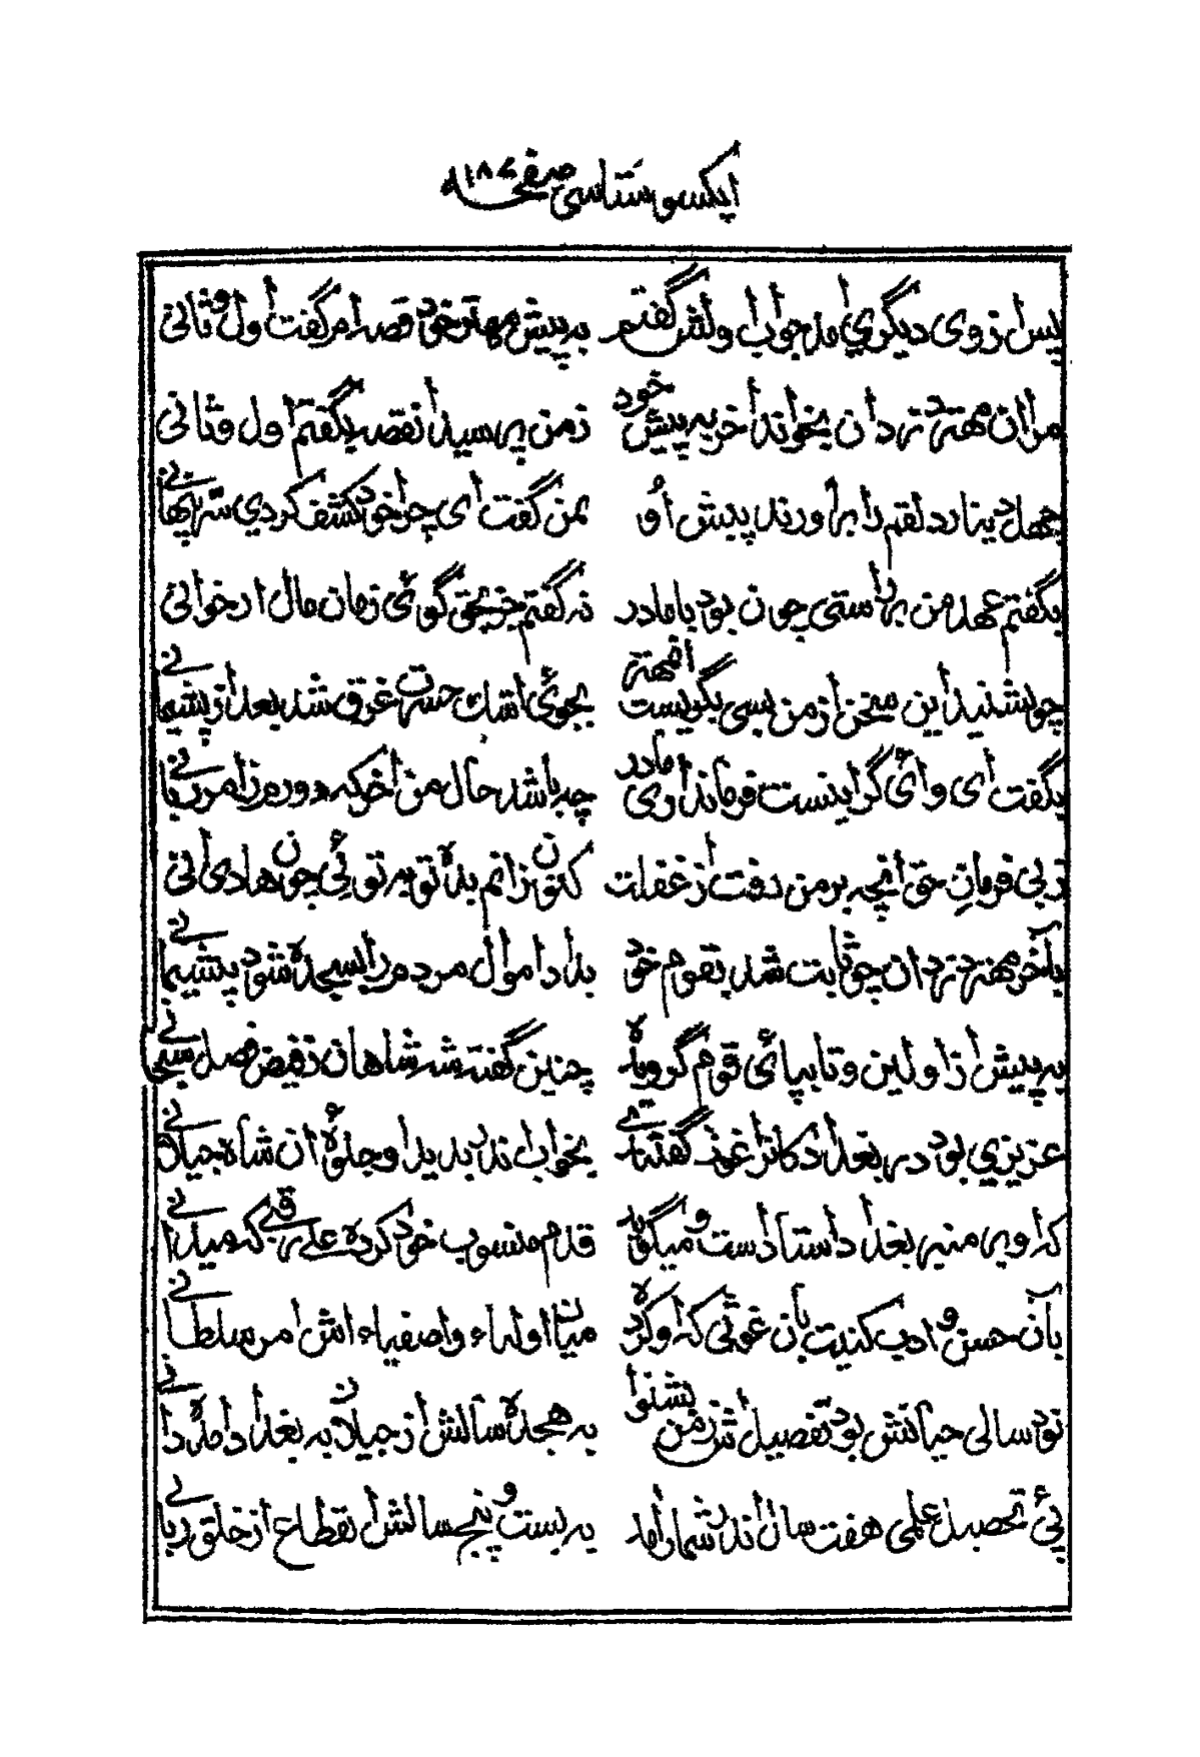 ایکسو ستاسی صفحه ۱۸۷
پس از وی دیگری آمد جواب اولش گفتم به پیش مهتر خود قصه ام گفت اول و ثانی
مرا آن مهتر دزدان بخواند آخر به پیش خود ز من پرسید آن قصه بگفتم اول و ثانی
چهل دینار دلقم را برآوردند پیش او بمن گفت ای چرا خود کشف کردی سر پنهانی
بگفتم عهد من بر راستی چون بود با مادر نه گفتم جز بحق گوئی زمان مال ار خوانی
چو بشنید این سخن از من بسی بگریست آن مهتر بجوئی اشک حسرت غرق شد بعد از پشیمانی
بگفت ای وائی گر اینست فرماندار‌ی مادر چه باشد حال من آخر که دورم ز امر ربانی
ز بی فرمان حق آنچه بر من رفت از غفلت کنون زانم بده توبه توئی چون هادی آنی
بآخر مهتر دزدان چو ثابت شد بقوم خود بداد اموال مردم را پشیمانی
به پیش از اولین و تا بپائی قوم گرویده چنین گفته شه شاهان ز فیض فصل سبحانی
عزیزی بود در بغداد کانرا غوث گفتندے بخواب اندر بدید او جلوۀ آن شاه جیلانی
که او پیر منیر بغداد استاد است و میگوید قدم منسوب خود کرده علی رقبی که میدانی
بآن حسن و ادب کنیت بآن غوثی که او کرده میان اولیاء و اصفیاء اش امر سلطانی
نود سالی حیاتش بود تفصیلش ز من بشنو به هجده سالش از جیلان به بغداد آمده دانی
پئ تحصیل علمی هفت سال اندر شمار آمد به بست و پنج سالش انقطاع از خلق ربانی